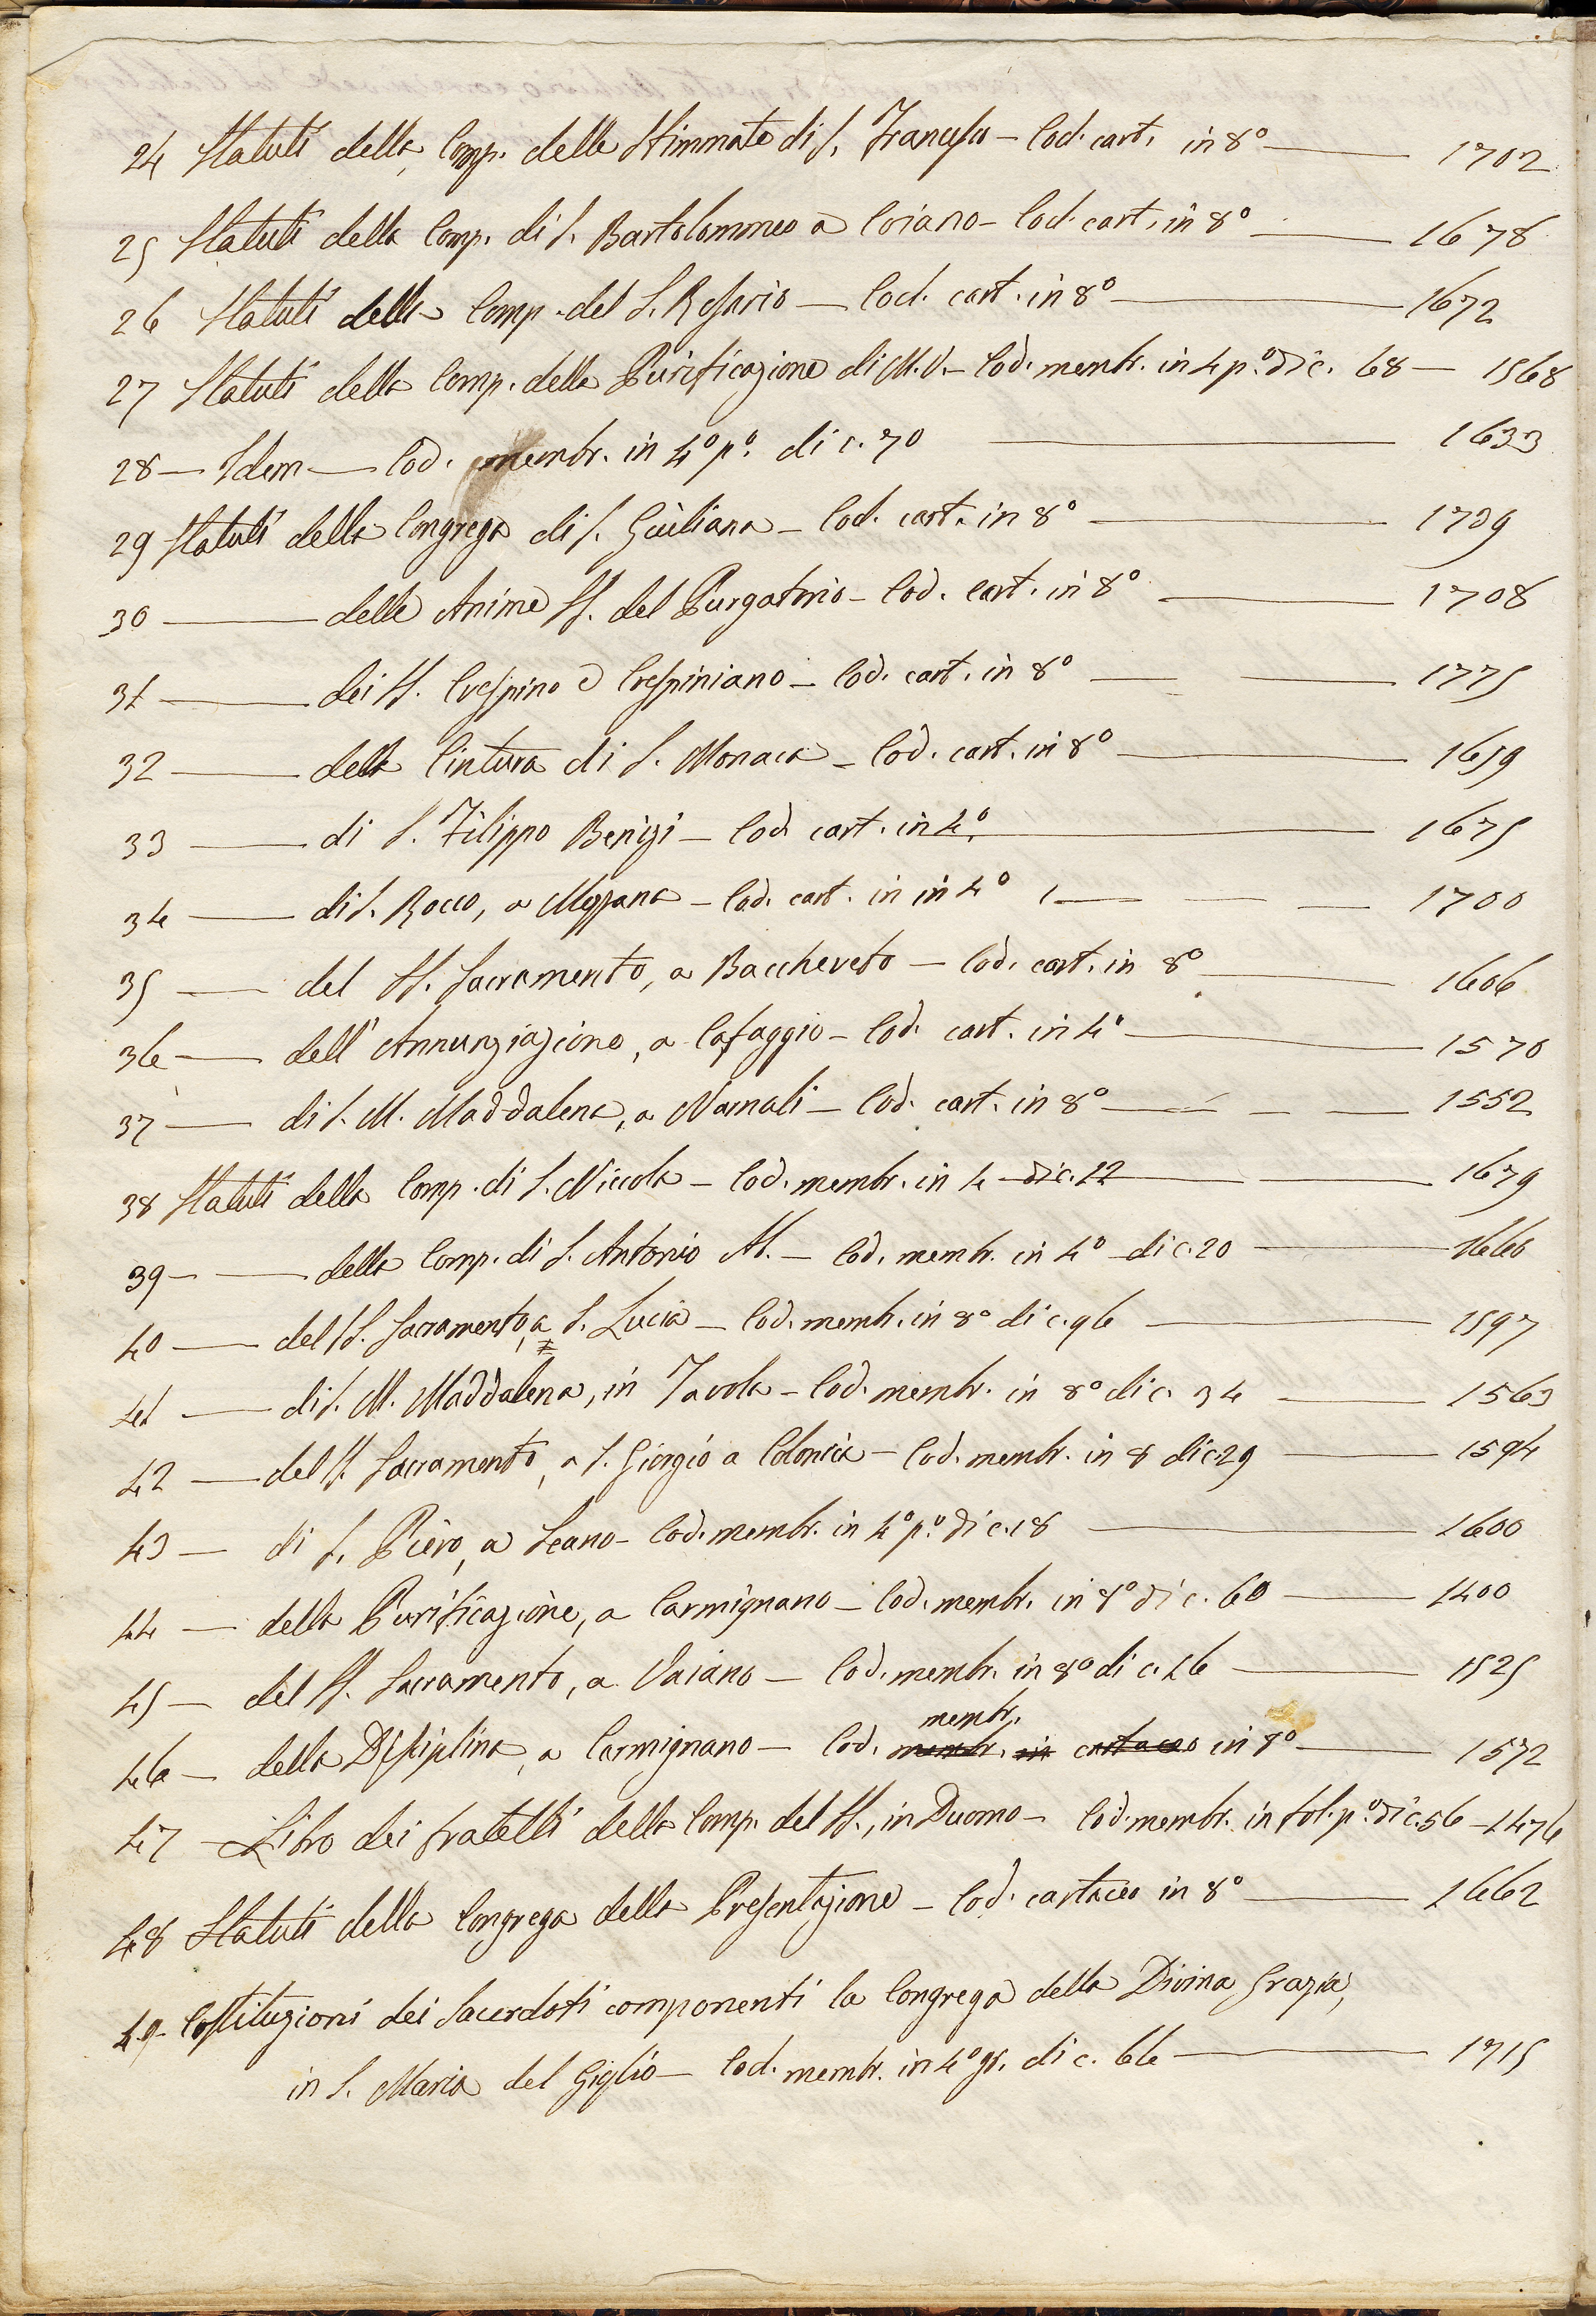 24 Statuti della Comp. delle Stimmate di S. Francesco — Cod. cart. in 8° — 1702
25 Statuti della Comp. di S. Bartolommeo a Coiano — Cod. cart. in 8° — 1678
26 Statuti della Comp. del S. Rosario — Cod. cart. in 8° — 1672
27 Statuti della Comp. della Purificazione di M.V. — Cod. membr. in 4 p.° di c. 68 — 1568
28 — Idem — Cod. membr. in 4° p.° di c. 70 — 1633
29 Statuti della Congrega di S. Giuliana — Cod. cart. in 8° — 1739
30 — delle Anime SS. del Purgatorio — Cod. cart. in 8° — 1708
31 — dei SS. Crespino e Crespiniano — Cod. cart. in 8° — 1775
32 — della Cintura di S. Monaca — Cod. cart. in 8° — 1659
33 — di S. Filippo Benizi — Cod. cart. in 4° — 1675
34 — di S. Rocco, a Mezzana — Cod. cart. in in 4° — 1700
35 — del SS. Sacramento, a Bacchereto — Cod. cart. in 8° — 1606
36 — dell'Annunziazione, a Cafaggio — Cod. cart. in 4° — 1570
37 — di S. M. Maddalena, a Narnali — Cod. cart. in 8° — 1552
38 Statuti della Comp. di S. Niccola — Cod. membr. in 4 — di c. 12 — 1679
39 — della Comp. di S. Antonio Ab. — Cod. membr. in 4° — di c. 20 — 1660
40 — del SS. Sacramento, a S. Lucia — Cod. membr. in 8° di c. 96 — 1597
41 — di S. M. Maddalena, in Tavola — Cod. membr. in 8° di c. 34 — 1563
42 — del S. Sacramento, a S. Giorgio a Colonica — Cod. membr. in 8 di c. 29 — 1594
43 — di S. Piero, a Seano — Cod. membr. in 4° p.° di c. 18 — 1600
44 — della Purificazione, a Carmignano — Cod. membr. in 8° di c. 60 — 1400
45 — del SS. Sacramento, a Vaiano — Cod. membr. in 8° di c. 16 — 1525
46 — della Disciplina, a Carmignano — Cod. membr. in 8° — 1572
47 — Libro dei fratelli della Comp. del SS., in Duomo — Cod. membr. in fol. p.° di c. 56 — 1476
48 Statuti della Congrega della Presentazione — Cod. cartaceo in 8° — 1662
49 — Costituzioni dei Sacerdoti componenti la Congrega della Divina Grazia,
in S. Maria del Giglio — Cod. membr. in 4° gr. di c. 66 — 1715